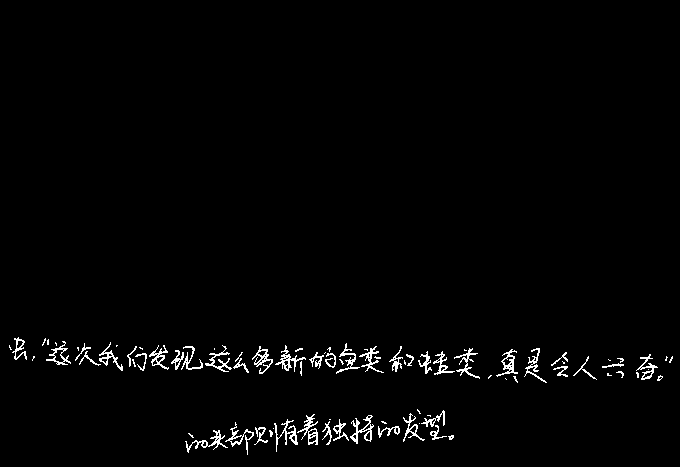 出，"这次我们发现这么多新的鱼类和蛙类，真是令人兴奋。"
的头部则有着独特的发型。